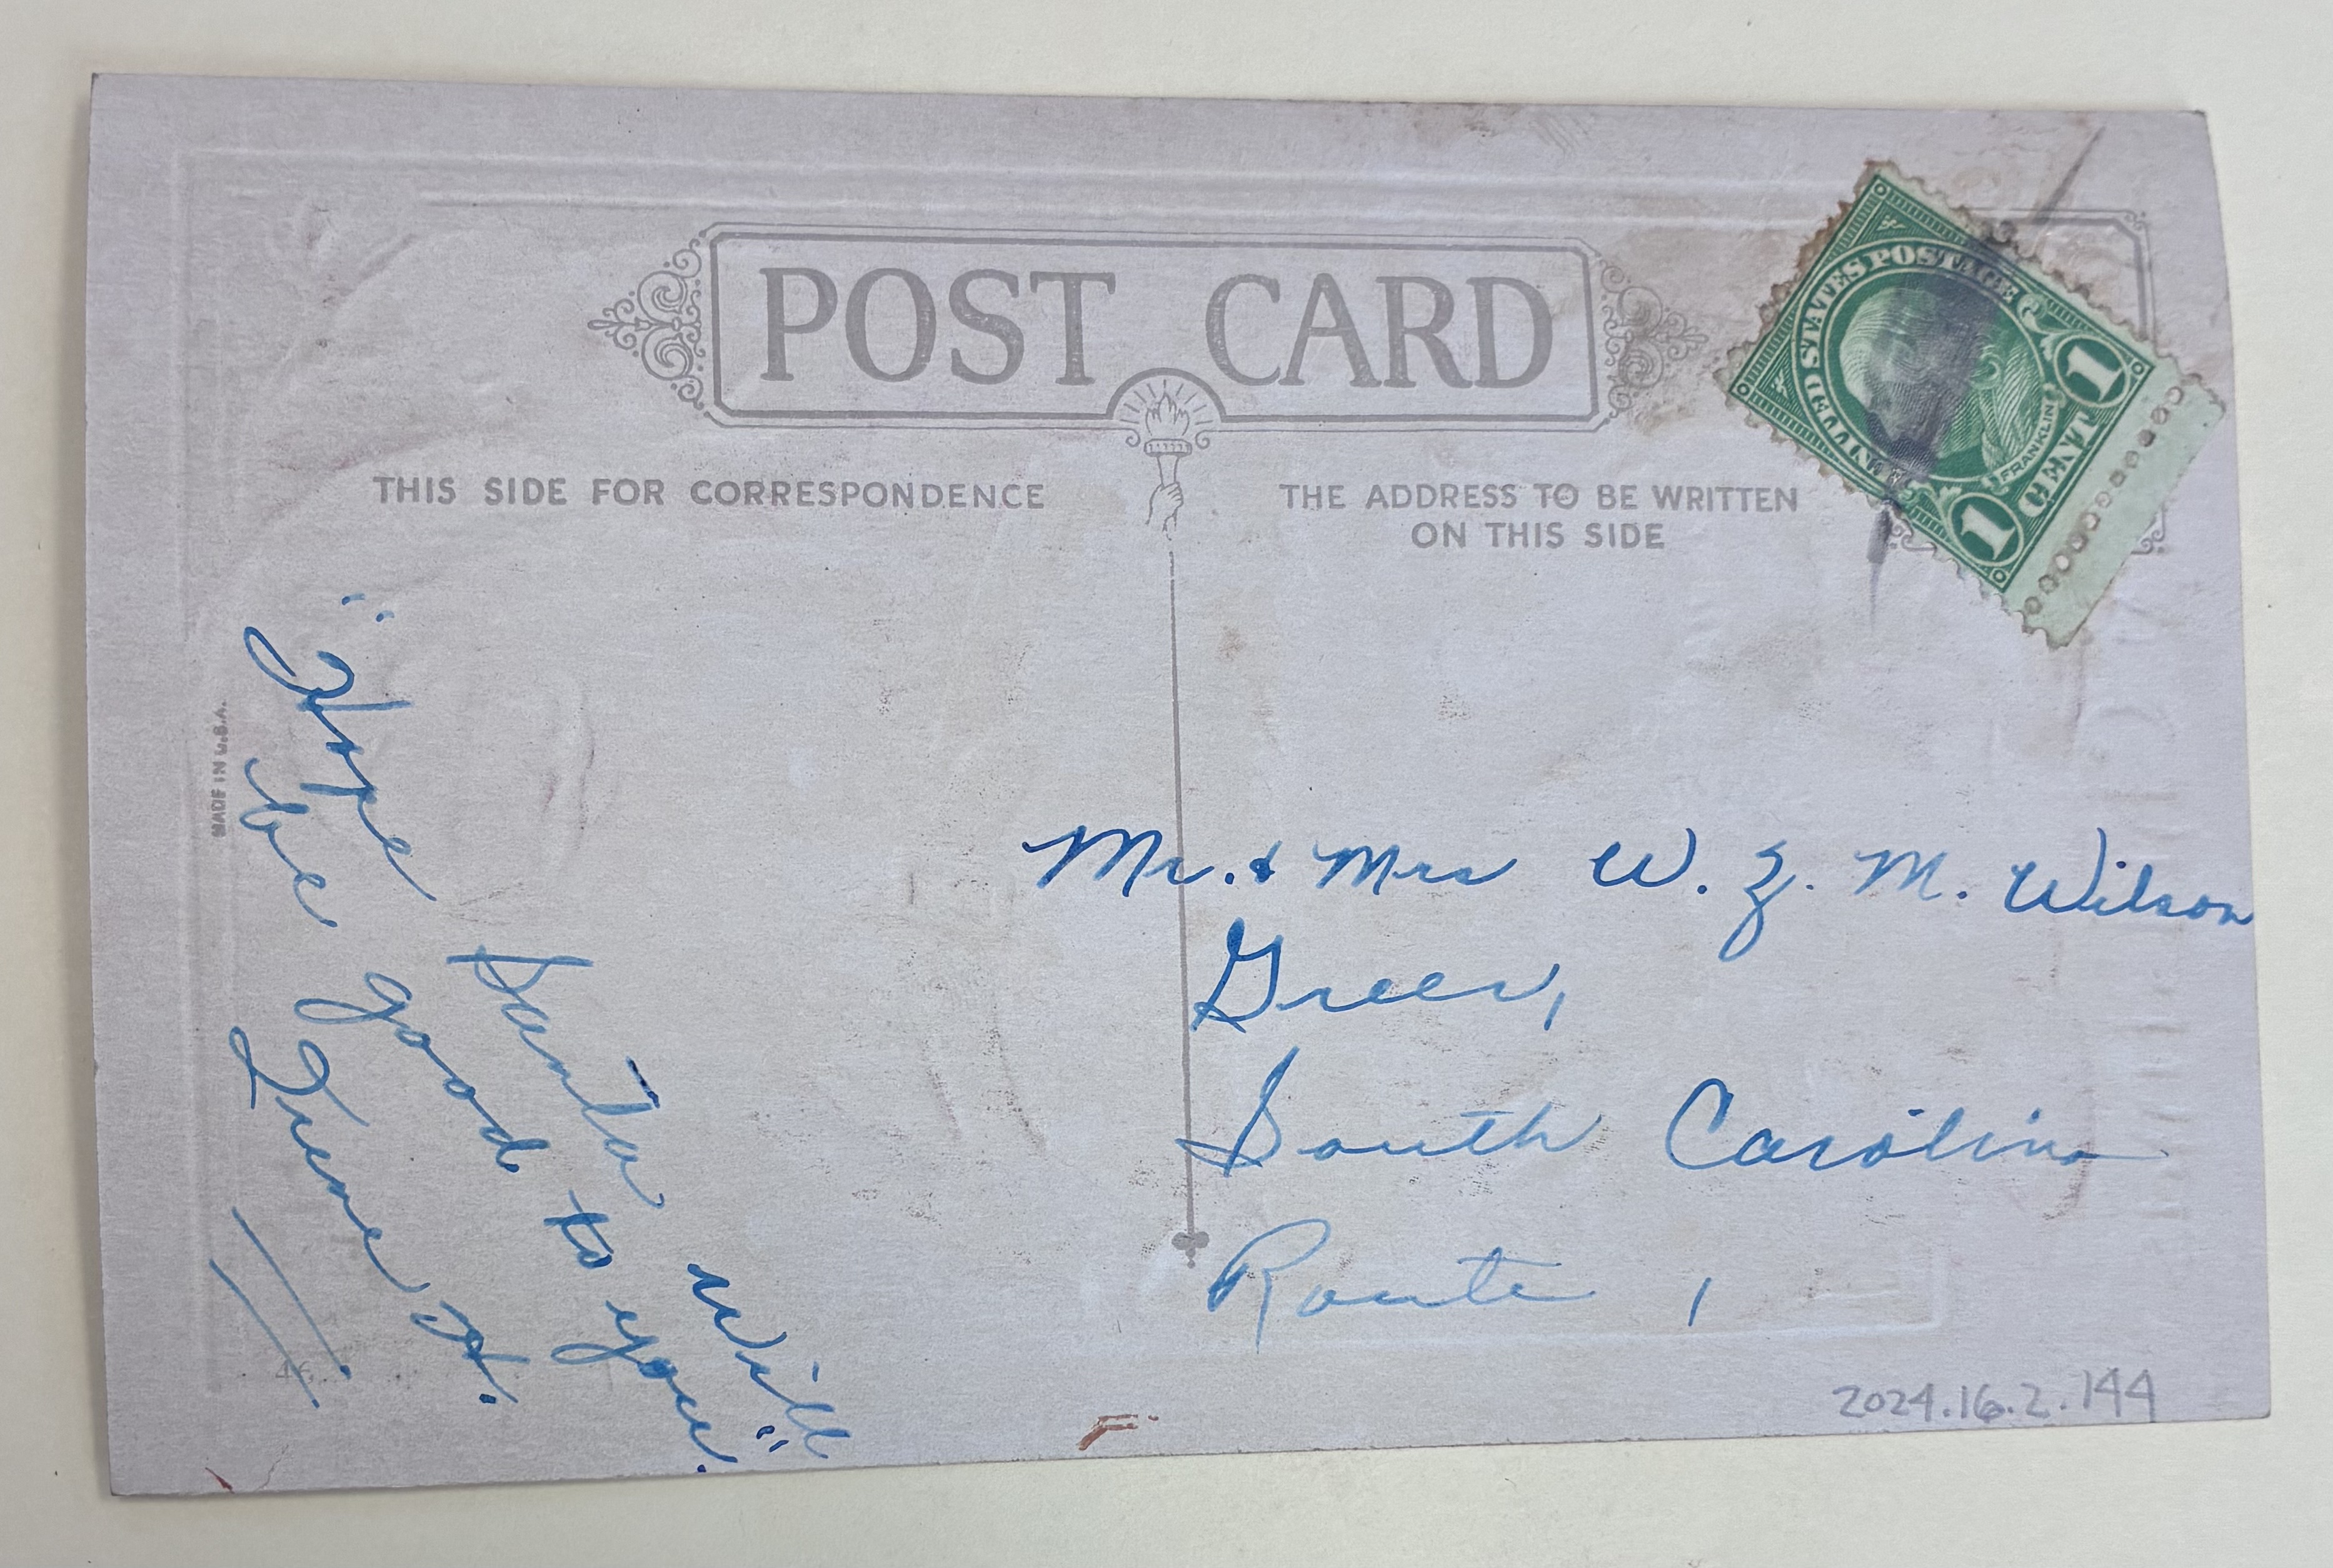 POST CARD
THIS SIDE FOR CORRESPONDENCE
THE ADDRESS TO BE WRITTEN
ON THIS SIDE
UNITED STATES POSTAGE
FRANKLIN
1 CENT 1
MADE IN U.S.A.
"Hope Santa will
be good to you."
H.
Mr. & Mrs W. Z. M. Wilson
Greer,
South Carolina
Route 1
2024.16.2.144